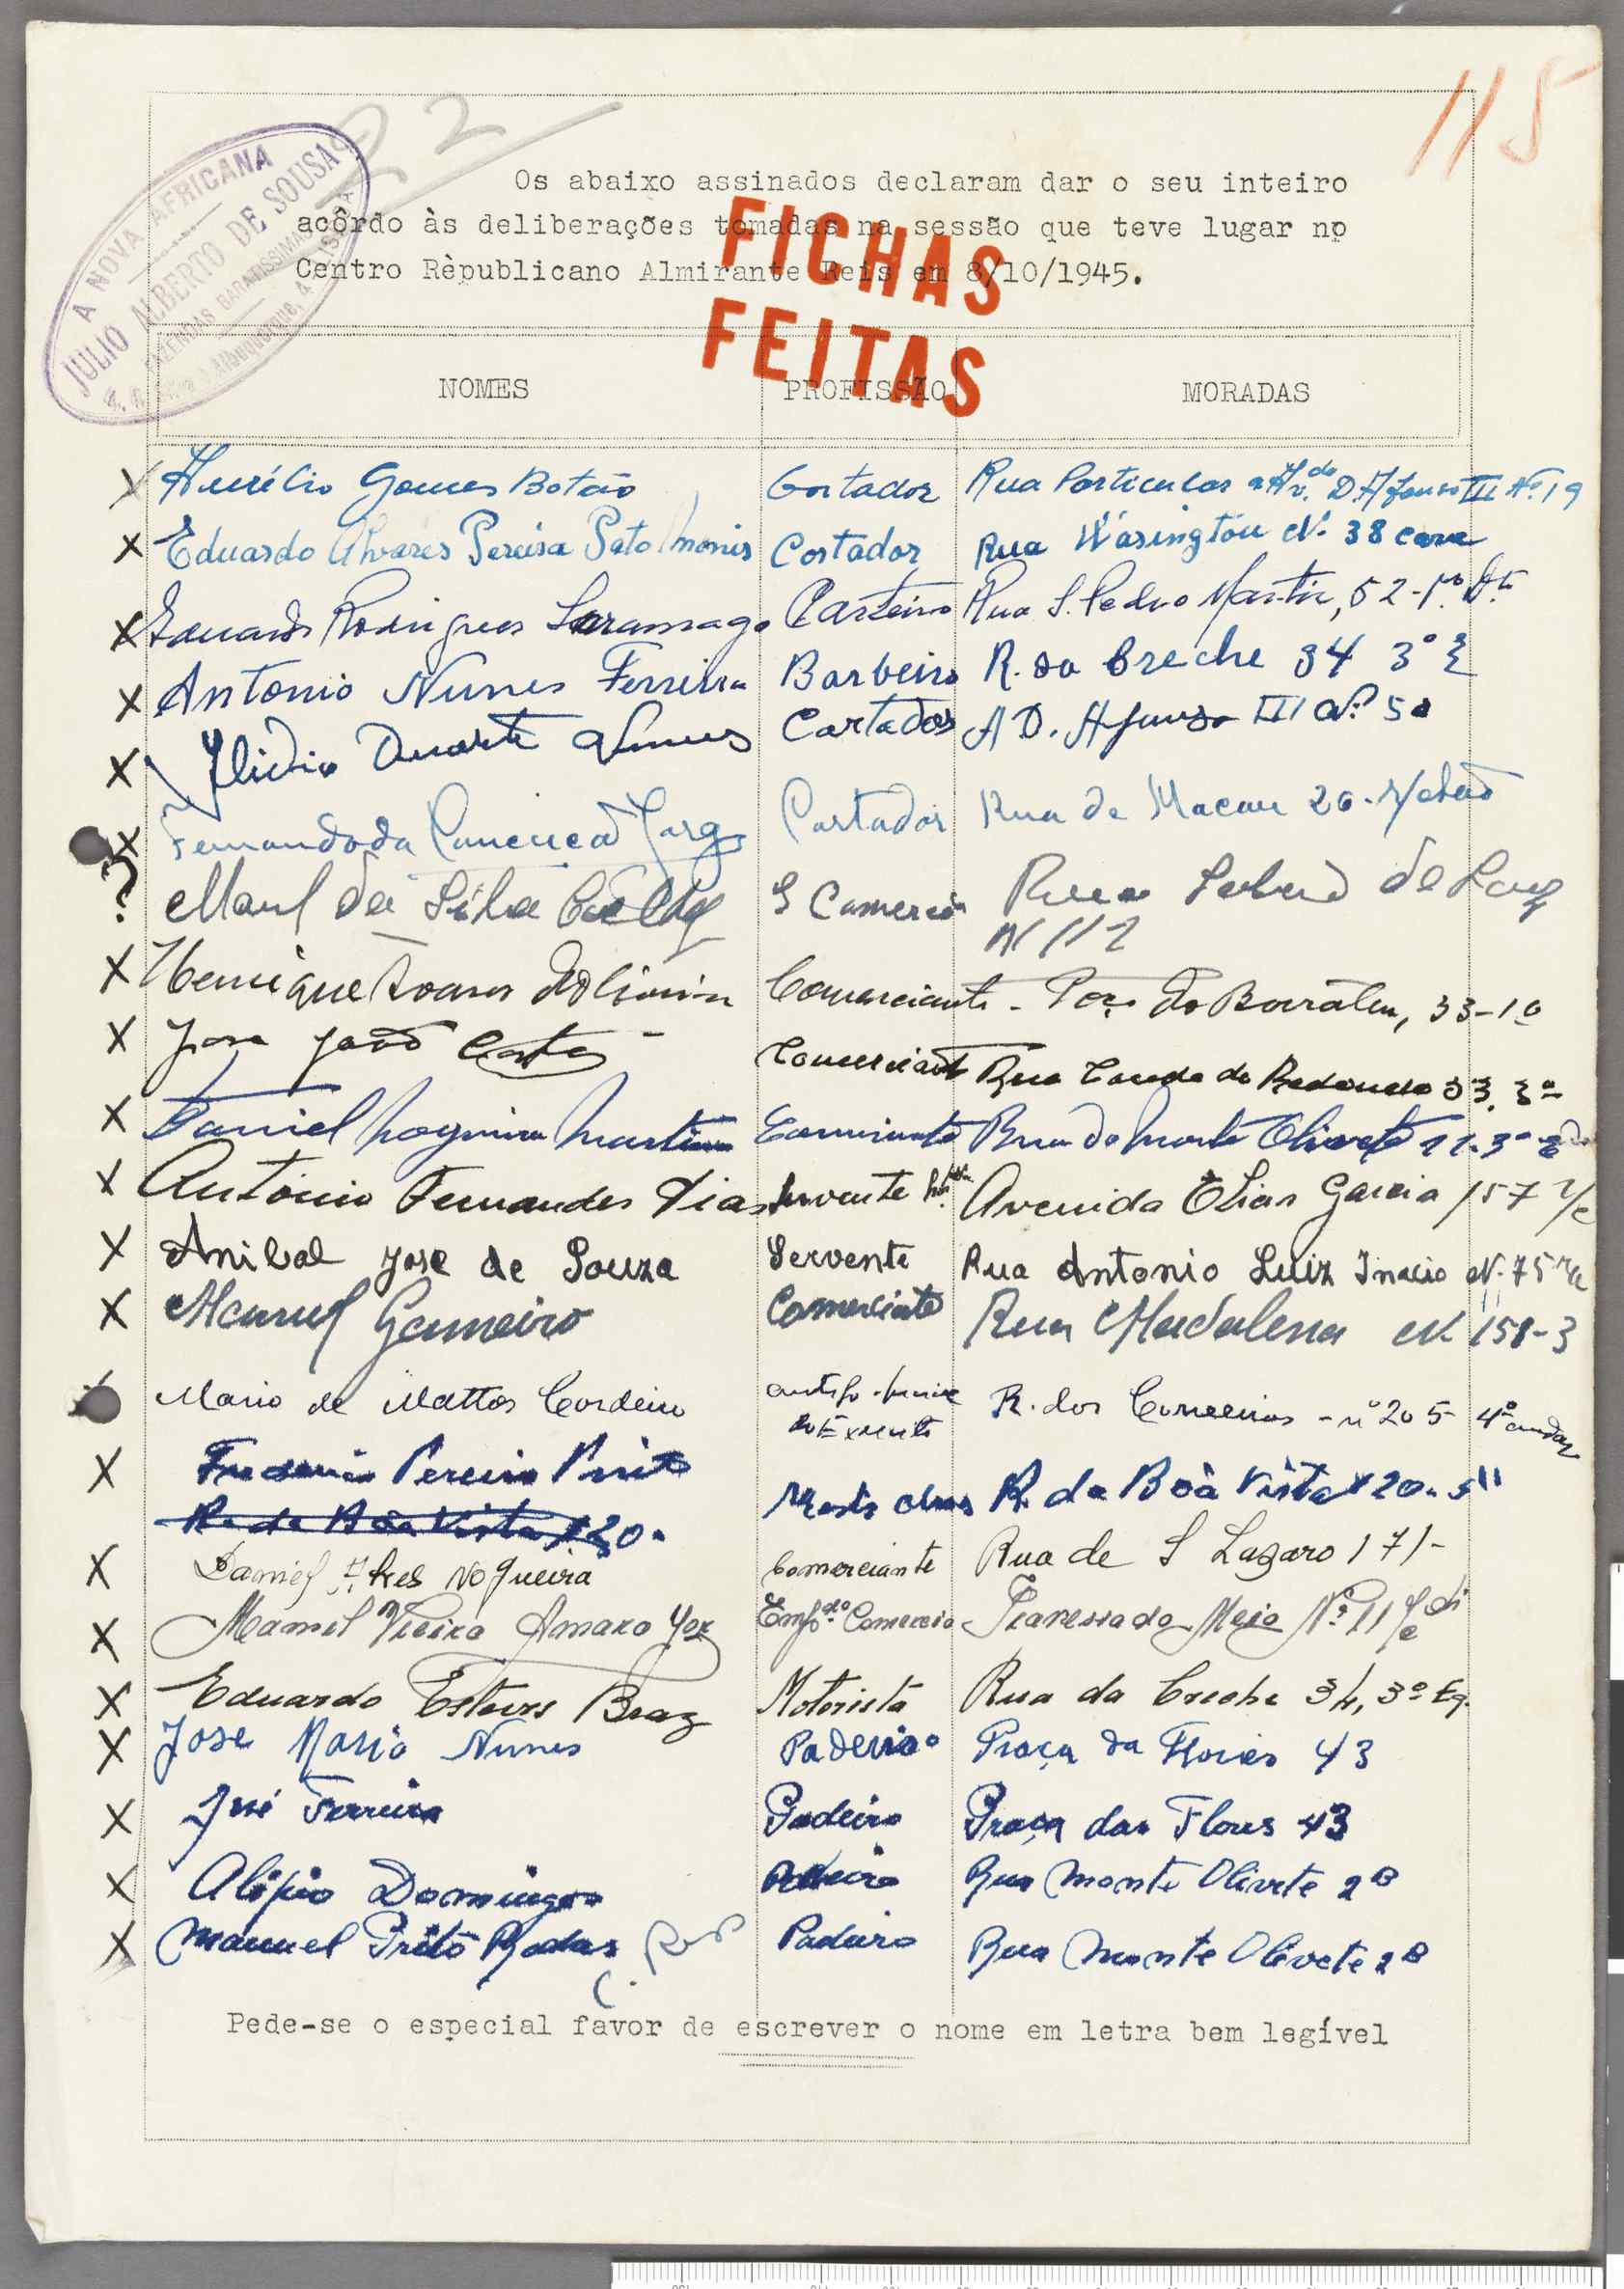 115
22
A NOVA AFRICANA
JULIO ALBERTO DE SOUSA
FAZENDAS BARATISSIMAS
Os abaixo assinados declaram dar o seu inteiro
acôrdo às deliberações tomadas na sessão que teve lugar no
Centro Rèpublicano Almirante Reis em 8/10/1945.
FICHAS
FEITAS
NOMES PROFISSÃO MORADAS
X Aurélio Gomes Botão Cortador Rua Particular a Av. de D. Afonso III Nº 19
X Eduardo Alvares Pereira Pato Moniz Cortador Rua Wasington Nº 38 cave
X Eduardo Rodrigues Saramago Carteiro Rua S. Pedro Martir, 52-1º Dtº
X Antonio Nunes Ferreira Barbeiro R. da Creche 34 3º E
X Ilidio Duarte Cortador A D. Afonso III Nº 50
X Fernando da Jorge Cortador Rua de Macau 20
? Manuel da Silva Comercio Rua
N 112
X Henrique Soares d'Oliveira Comerciante - Poço do Borratem, 33-1º
X José João Costa Comerciante Rua Conde de Redondo 53, 3º
X Daniel Nogueira Martins Comerciante Rua do Monte Olivete 11-3º Edo
X António Fernandes Dias Servente Avenida Elias Garcia 157 r/c
X Anibal José de Souza Servente Rua Antonio Luiz Inacio Nº 75 r/c
X Manuel Gameiro Comerciante Rua Madalena Nº 158-3
Mario de Mattos Cordeiro R. dos Correeiros - nº 205 4º andar
do Exercito
X Frederico Pereira Pinto Mestre obras R. da Boà Vista 120-3º
R. da Boa Vista 120-
X Daniel Alves Nogueira Comerciante Rua de S Lazaro 171-
X Manuel Vieira Amaro Vaz Empº do Comercio Travessa do Meio Nº 11 r/c dto
X Eduardo Esteves Braz Motorista Rua da Creche 34, 3º Eq.
X Jose Maria Nunes Padeiro Praça da Flores 43
X José Ferreira Padeiro Praça das Flores 43
X Alipio Domingos Padeiro Rua Monte Olivete 2B
X Manuel Prito Rodas Padeiro Rua Monte Olivete 2B
Pede-se o especial favor de escrever o nome em letra bem legível